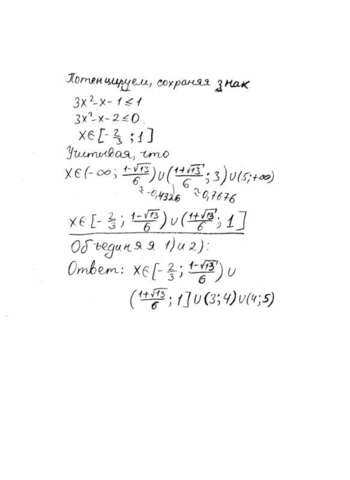 Потенцируем, сохраняя знак
3x²-x-1≤1
3x²-x-2≤0
x∈[-2/3;1]
Учитывая, что
x∈(-∞; (1-√13)/6)∪((1+√13)/6; 3)∪(5;+∞)
≈-0,4326 ≈0,7676
x∈[-2/3; (1-√13)/6)∪((1+√13)/6; 1]
Объединяя 1) и 2):
Ответ: x∈[-2/3; (1-√13)/6)∪
((1+√13)/6; 1]∪(3;4)∪(4;5)